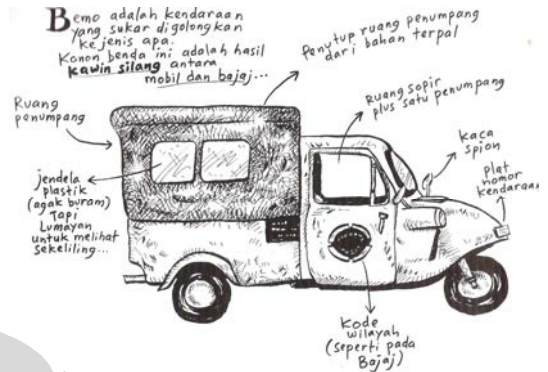 Bemo adalah kendaraan
yang sukar digolongkan
ke jenis apa.
Konon benda ini adalah hasil
kawin silang antara
mobil dan bajaj...
Penutup ruang penumpang
dari bahan terpal
Ruang sopir
plus satu penumpang
Ruang
penumpang
kaca
spion
plat
nomor
kendaraan
jendela
plastik
(agak buram)
Tapi
Lumayan
untuk melihat
sekeliling...
Kode
wilayah
(seperti pada
Bajaj)